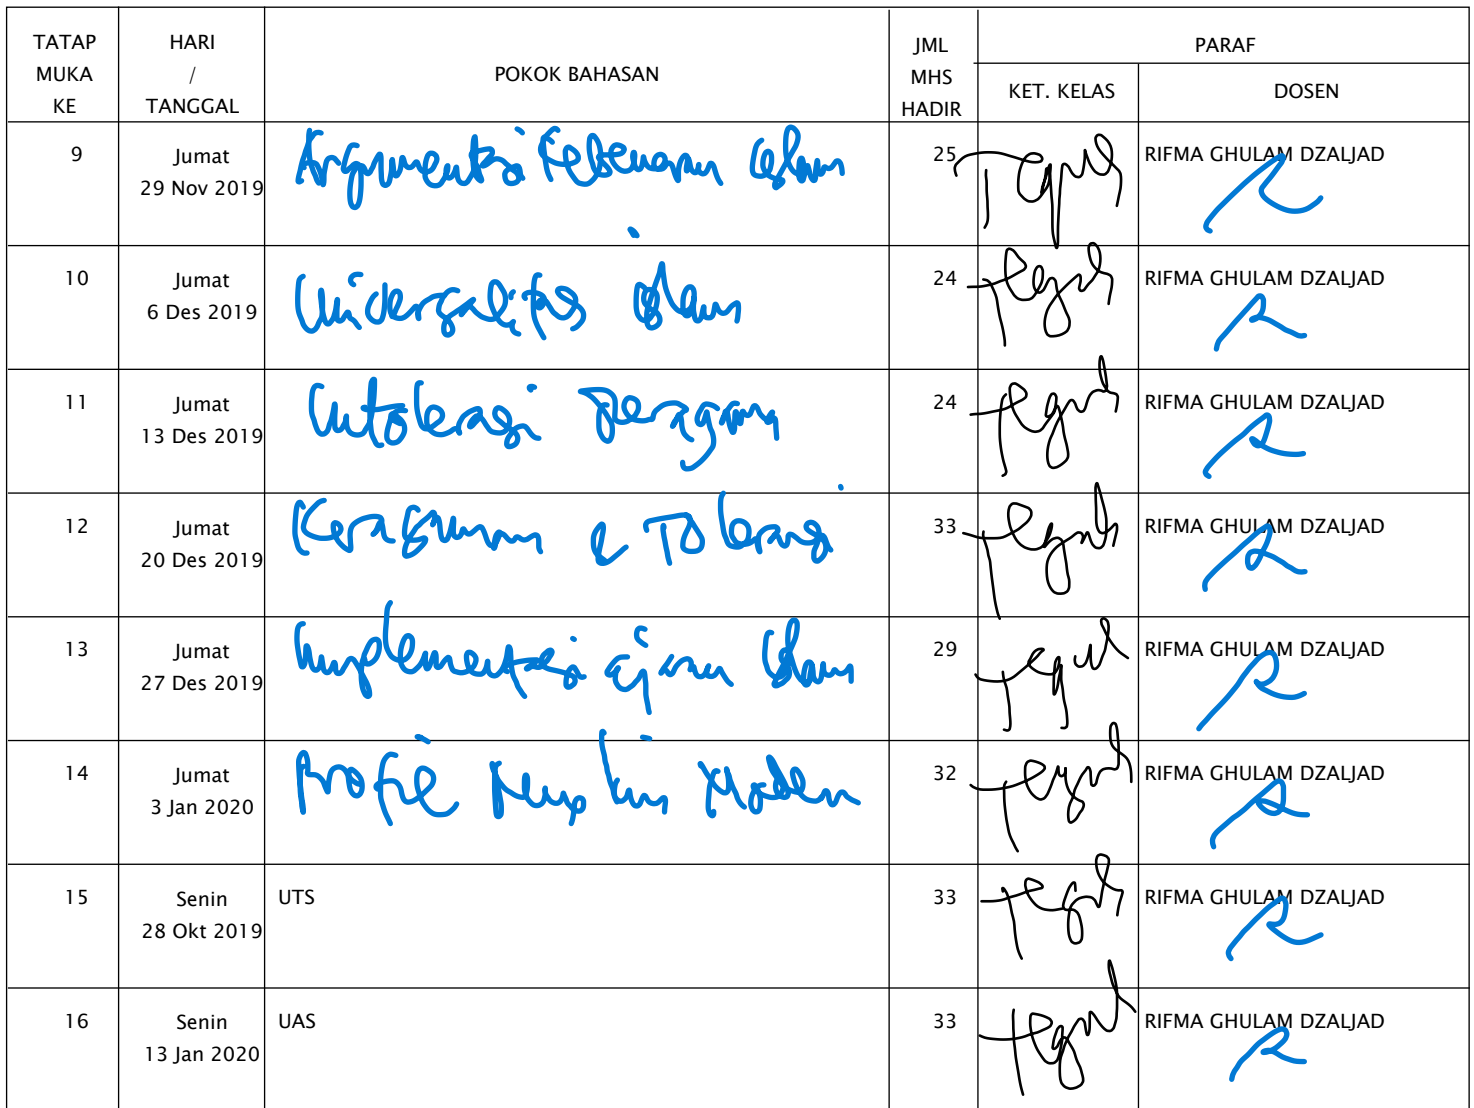 TATAP MUKA KE HARI / TANGGAL POKOK BAHASAN JML MHS HADIR PARAF
KET. KELAS DOSEN
9 Jumat 29 Nov 2019 Argumentasi Kebenaran Islam 25 Teguh RIFMA GHULAM DZALJAD
10 Jumat 6 Des 2019 Universalitas Islam 24 Teguh RIFMA GHULAM DZALJAD
11 Jumat 13 Des 2019 Intoleransi Beragama 24 Teguh RIFMA GHULAM DZALJAD
12 Jumat 20 Des 2019 Keragaman & Toleransi 33 Teguh RIFMA GHULAM DZALJAD
13 Jumat 27 Des 2019 Implementasi ajaran Islam 29 Teguh RIFMA GHULAM DZALJAD
14 Jumat 3 Jan 2020 Profil Muslim Modern 32 Teguh RIFMA GHULAM DZALJAD
15 Senin 28 Okt 2019 UTS 33 Teguh RIFMA GHULAM DZALJAD
16 Senin 13 Jan 2020 UAS 33 Teguh RIFMA GHULAM DZALJAD